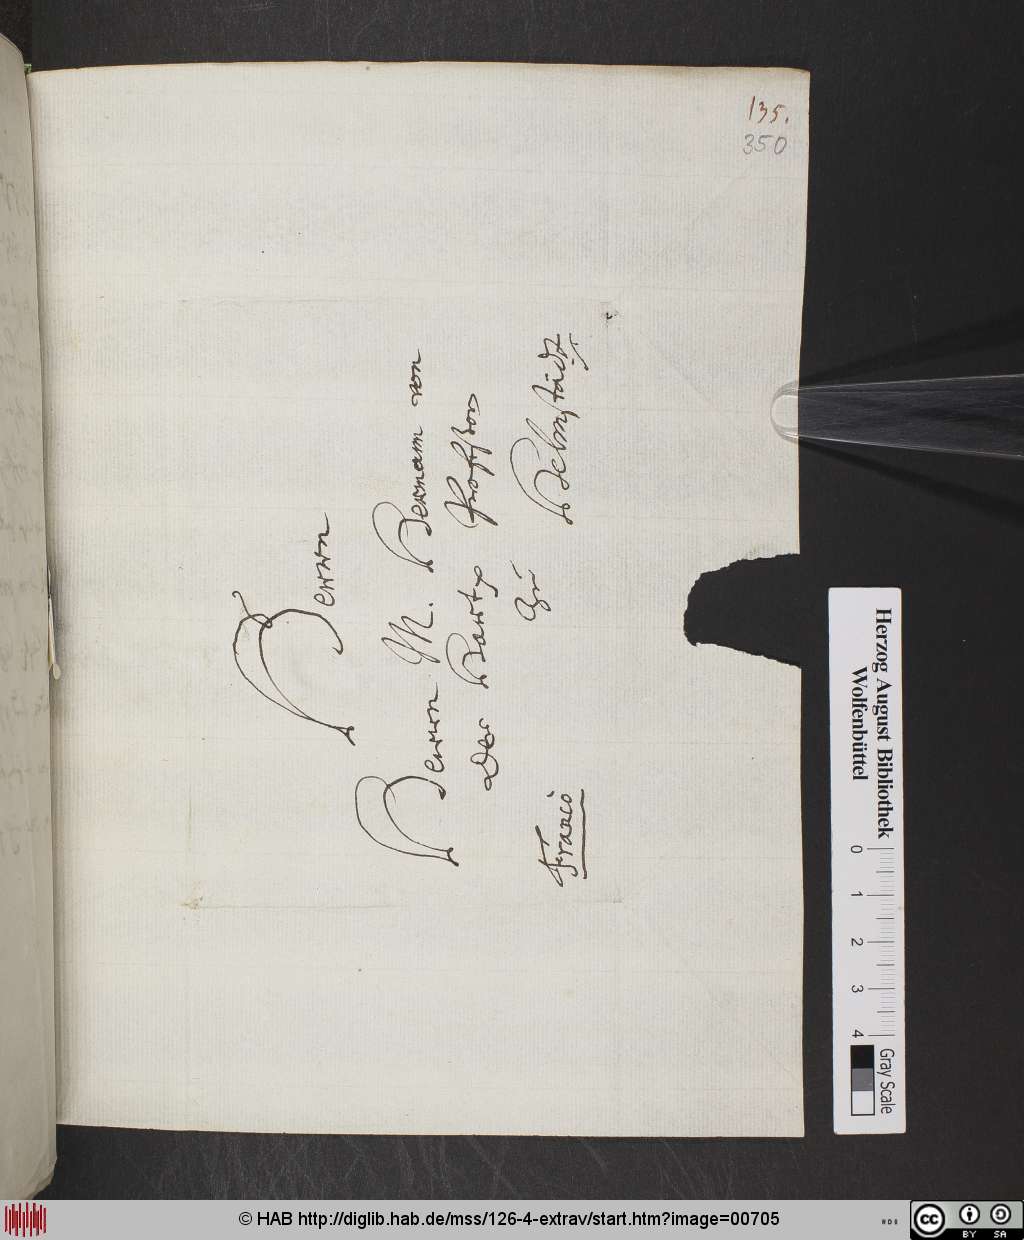 135.
350
Herrn
Herrn M. Herman von
Der Hardt Professor
Zu Helmstädt
Franco
Herzog August Bibliothek
Wolfenbüttel
0 1 2 3 4
Gray Scale
© HAB http://diglib.hab.de/mss/126-4-extrav/start.htm?image=00705
cc BY SA